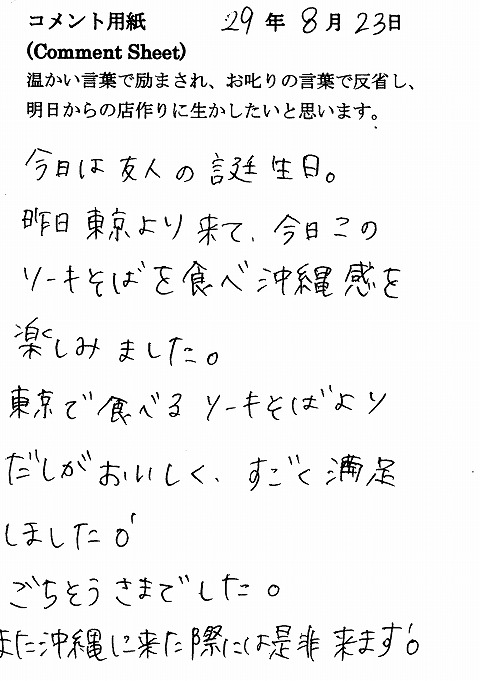 コメント用紙 29年8月23日
(Comment Sheet)
温かい言葉で励まされ、お叱りの言葉で反省し、
明日からの店作りに生かしたいと思います。
今日は友人の誕生日。
昨日東京より来て、今日この
ソーキそばを食べ沖縄感を
楽しみました。
東京で食べるソーキそばより
だしがおいしく、すごく満足
しました。
ごちそうさまでした。
また沖縄に来た際には是非来ます。